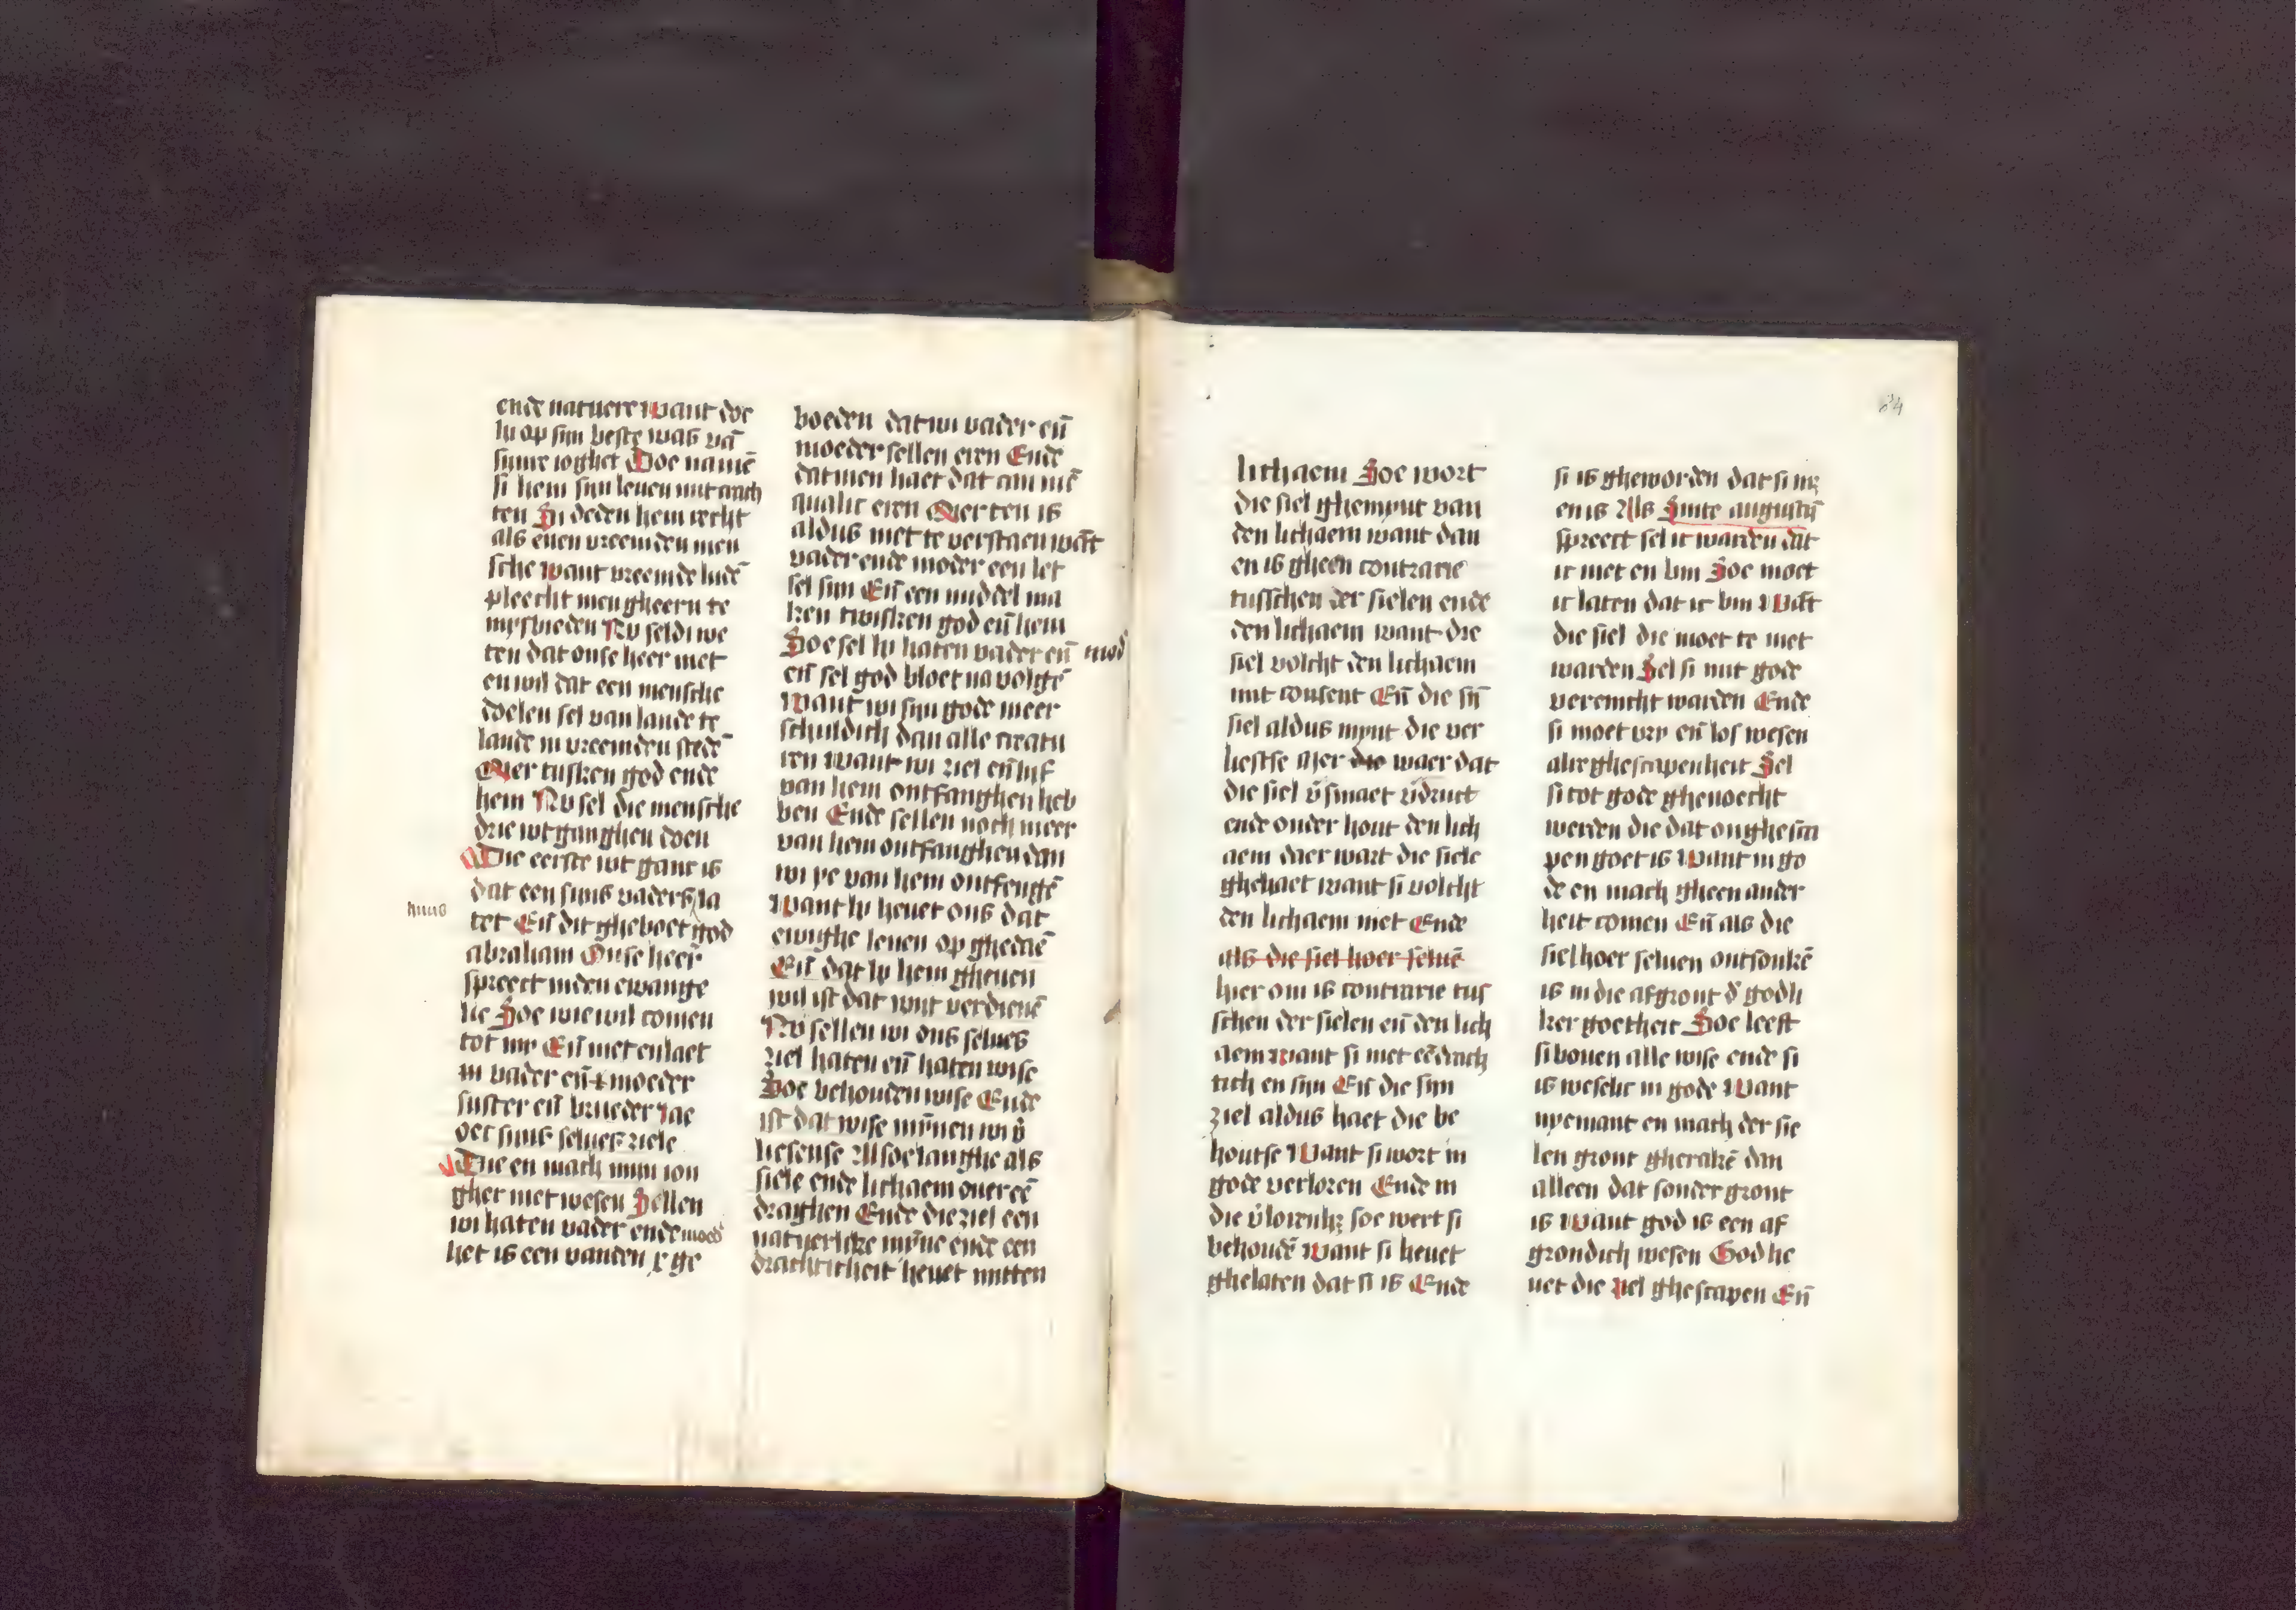 ende natuere want doe
hi op sijn beste was vā
sijnre ioghet Doe namē
si hem sijn leuen mit crach
ten Si deden hem recht
als enen vreemden men
sche want vreemde ludē
pleecht men gheern te
mysbieden Nu seldi we
ten dat onse heer niet
en wil dat een mensche
doelen sel van lande te
lande in vreemden stedē
Mer tusken god ende
hem Nu sel die mensche
drie wtganghen doen
Die eerste wt ganc is
dat een sijns vaders la
huus
tet Eñ dit gheboet god
abraham Onse heer
spreect inden ewange
lie Soe wie wil comen
tot my Eñ niet en laet
in vader eñ moeder
suster eñ brueder Jae
oec sijns selues ziele
Die en mach mijn ion
gher niet wesen Sellen
wi haten vader ende moed
het is een vanden x ge
boeden dat wi vader eñ
moeder sellen eren Ende
datmen haet dat can mē
qualic eren Mer ten is
aldus niet te verstaen wāt
vader ende moder een let
sel sijn Eñ een middel ma
ken twisken god eñ hem
Soe sel hi haten vader eñ mod
eñ sel god bloet na volgē
Want wi sijn gode meer
schuldich dan alle creatu
ren want wi ziel eñ lijf
van hem ontfanghen heb
ben Ende sellen noch meer
van hem ontfanghen dan
wi ye van hem ontfengē
Want hi heuet ons dat
ewighe leuen op ghedaē
Eñ dat hi hem gheuen
wil ist dat wijt verdienē
Nu sellen wi ons selues
ziel haten eñ haten wise
Soe behouden wise Ende
ist dat wise mȳnen wi v̄
liesense Alsoe langhe als
siele ende lichaem ouer eē
draghen Ende die ziel een
natuerlicke mȳne ende een
drachticheit heuet mitten
84
lichaem Soe wort
die siel ghemynt van
den lichaem want dan
en is gheen contrarie
tusschen der sielen ende
den lichaem want die
siel volcht den lichaem
mit consent Eñ die sijn
siel aldus mynt die ver
liestse Mer die waer dat
die siel v̄smaet v̄druct
ende onder hout den lich
aem daer wart die siele
ghehaet want si volcht
den lichaem niet Ende
als die siel hoer seluē
hier om is contrarie tus
schen der sielen eñ den lich
aem want si niet eēdrach
tich en sijn Eñ die sijn
ziel aldus haet die be
houtse Want si wort in
gode verloren Ende in
die v̄lorenhz soe wert si
behoudē want si heuet
ghelaten dat si is Ende
si is gheworden dat si nz
en is Als Sinte augustijn
spreect sel ic warden dat
ic niet en bin Soe moet
ic laten dat ic bin Wāt
die siel die moet te niet
warden Sel si mit gode
verenicht warden Ende
si moet vry eñ los wesen
alre ghescapenheit Sel
si tot gode ghenoecht
werden die dat onghesca
pen goet is Want in go
de en mach gheen ander
heit comen Eñ als die
siel hoer seluen ontsonkē
is in die afgront d̄ godli
ker goetheit Soe leeft
si bouen alle wise ende si
is weselic in gode Want
nyemant en mach der sie
len gront gherakē dan
alleen dat sonder gront
is Want god is een af
grondich wesen God he
uet die ziel ghescapen Eñ